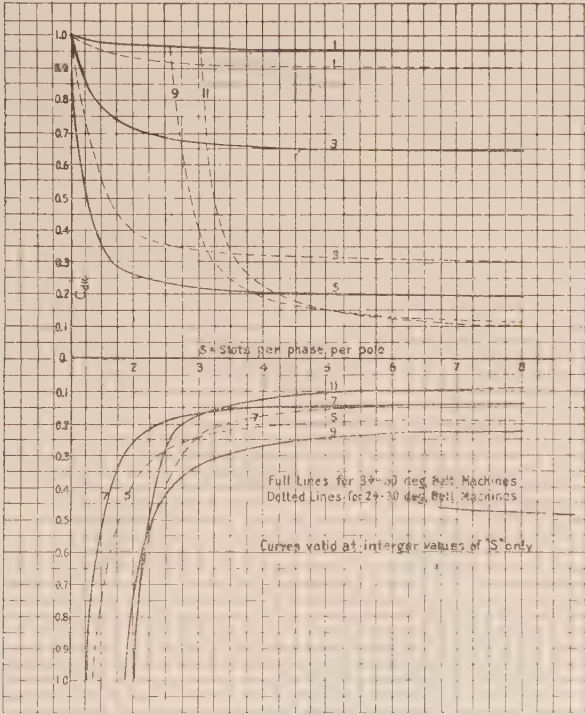 1.0
0.9
0.8
0.7
0.6
0.5
0.4
0.3
0.2
0.1
0
0.1
0.2
0.3
0.4
0.5
0.6
0.7
0.8
0.9
1.0
1
1
9
11
3
3
5
S = Slots per phase per pole
2 3 4 5 6 7 8
11
7
7
5
9
7
5
Full Lines for 3Φ-60 deg. Belt Machines
Dotted Lines for 2Φ-90 deg. Belt Machines
Curves valid at interger values of "S" only